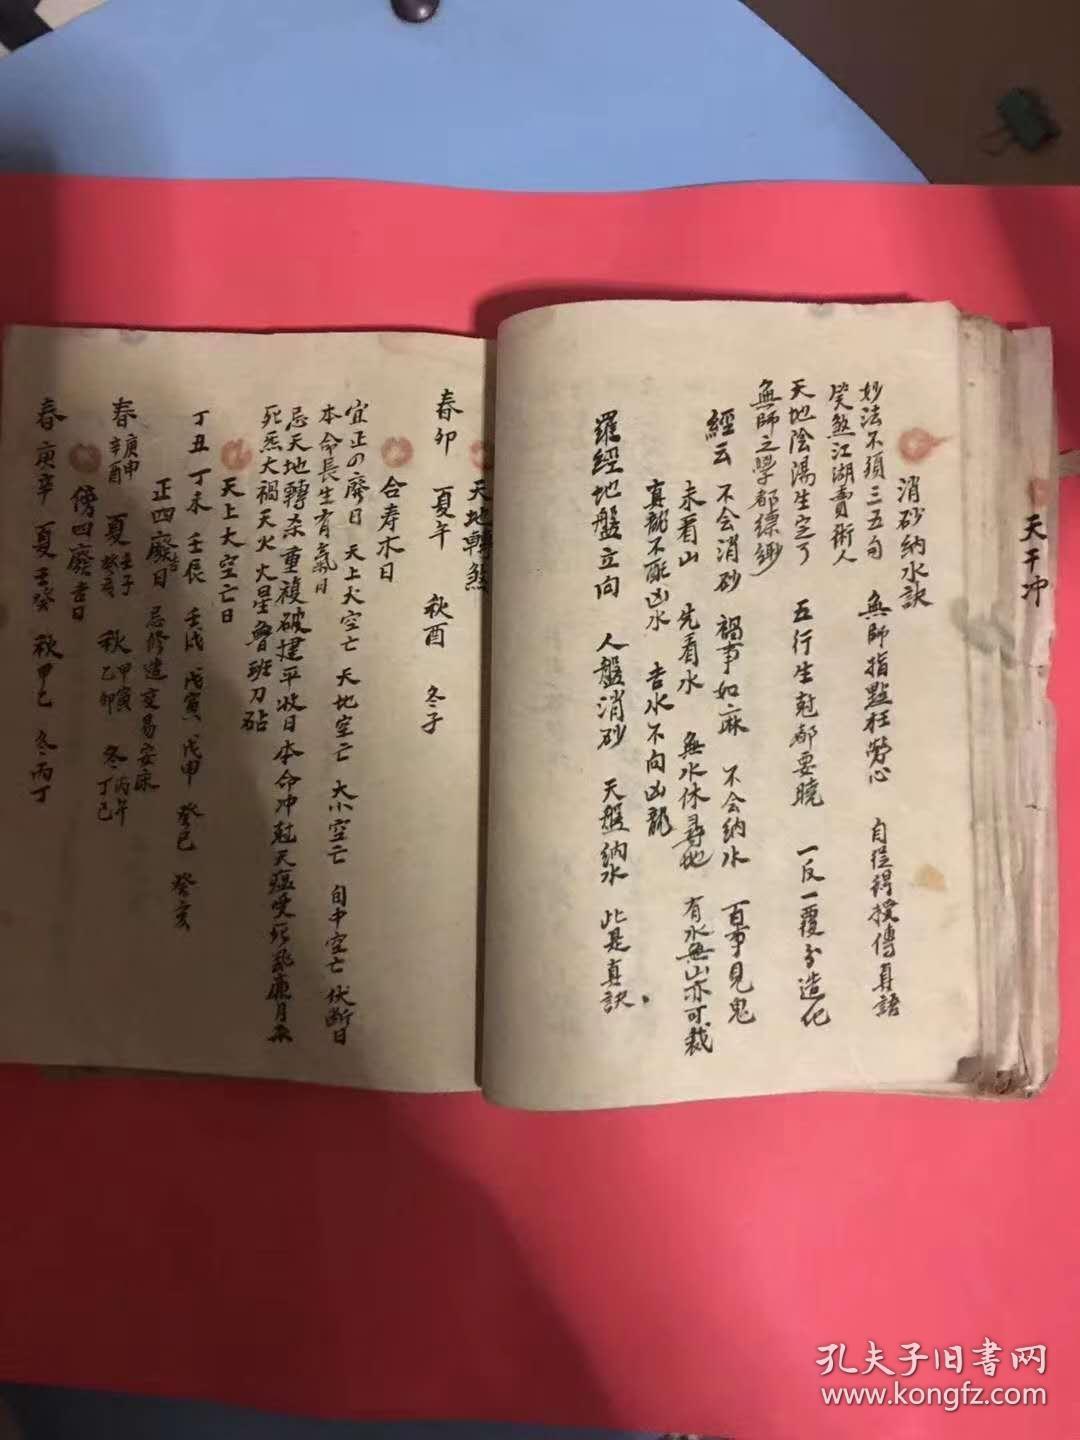 天干冲
消砂納水訣
妙法不須三五句 無師指點枉勞心 自從得授傳真語
笑煞江湖賣術人
天地陰陽生定了 五行生尅都要曉 一反一覆分造化
無師之學都縹緲
經云 不会消砂 禍事如麻 不会納水 百事見鬼
未看山 先看水 無水休尋地 有水無山亦可裁
真龍不配凶水 吉水不向凶龍
羅經地盤立向 人盤消砂 天盤納水 此是真訣。
天地轉煞
春卯 夏午 秋酉 冬子
合寿木日
宜正四廢日 天上大空亡 天地空亡 大小空亡 旬中空亡 伏断日
本命長生有氣日
忌天地轉杀重複破建平收日本命冲尅天瘟受死 廉月杀
死炁大禍天火火星魯班刀砧
天上大空亡日
丁丑 丁未 壬辰 壬戌 戊寅 戊申 癸巳 癸亥
正四廢吉日 忌修造交易安床
春庚申辛酉 夏壬子癸亥 秋甲寅乙卯 冬丙午丁巳
傍四廢吉日
春庚辛 夏壬癸 秋甲乙 冬丙丁
孔夫子旧書网
www.kongfz.com